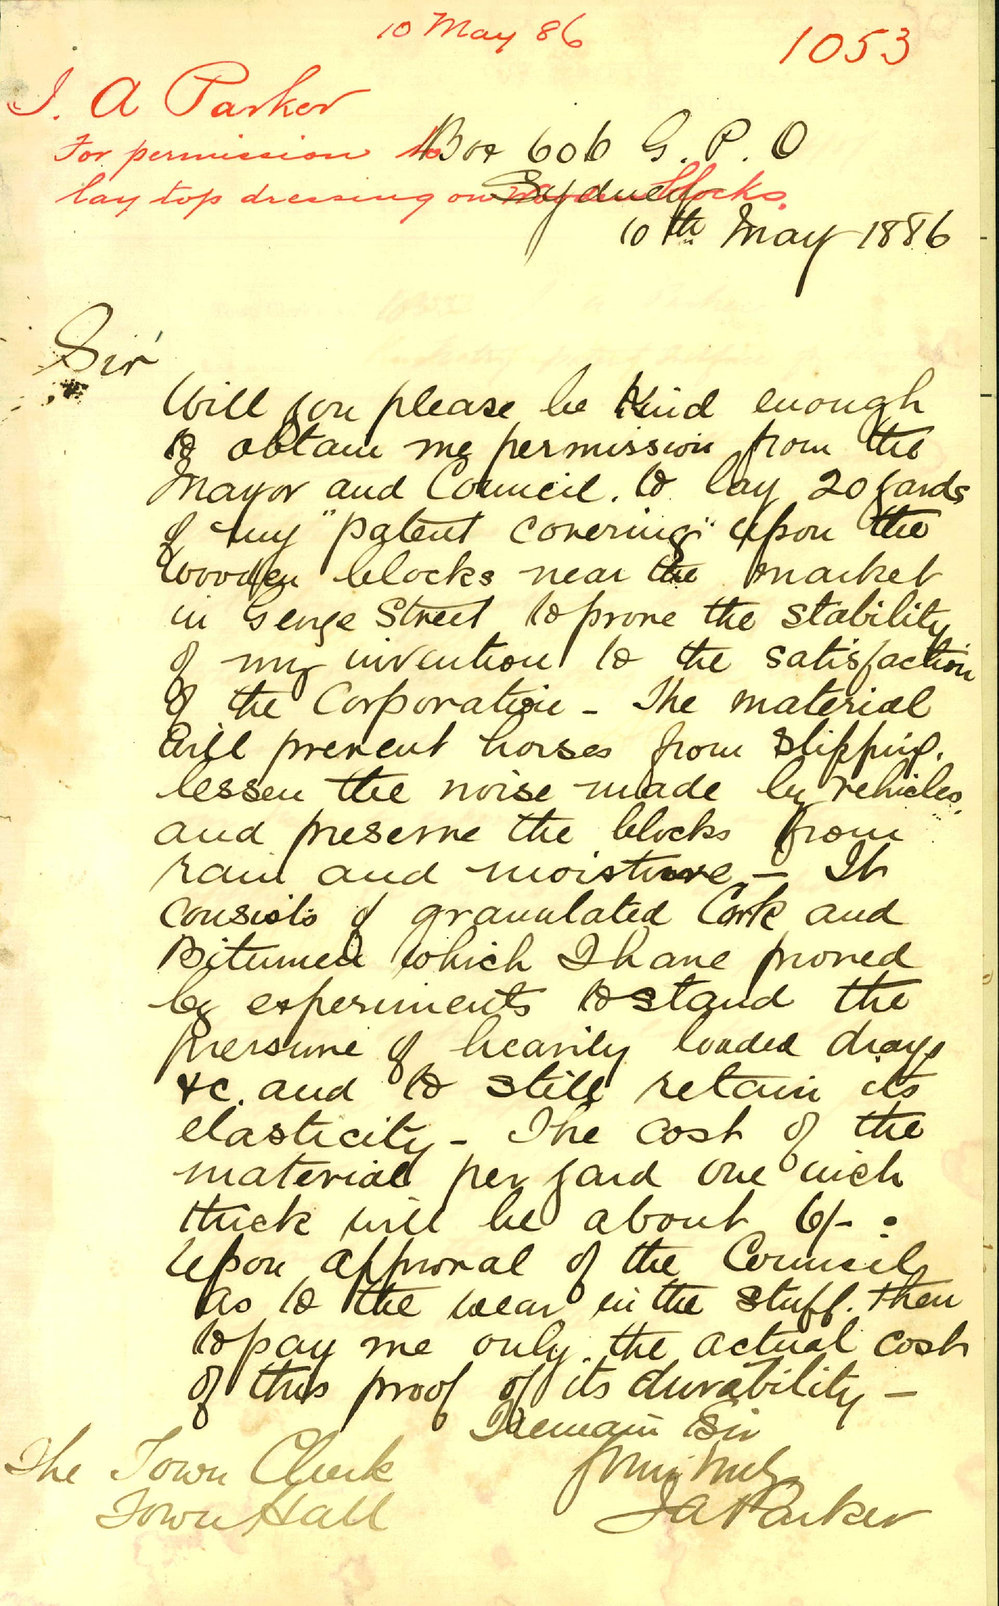 10 May 86
1053
J. A Parker
For permission to
lay top dressing on wooden blocks.
Box 606 G. P. O
Sydney
10th May 1886
Sir
Will you please be kind enough
to obtain me permission from the
Mayor and Council. to lay 20 yards
of my "patent covering" upon the
wooden blocks near the market
in George Street to prove the stability
of my invention to the satisfaction
of the Corporation - The material
will prevent horses from slipping.
lessen the noise made by vehicles.
and preserve the blocks from
rain and moisture - It
consists of granulated Cork and
Bitumen which I have proved
by experiments to stand the
pressure of heavily loaded drays
&c. and to still retain its
elasticity - The cost of the
material per yard one inch
thick will be about 6/- .
Upon approval of the Council
as to the wear in the stuff. then
to pay me only the actual cost
of this proof of its durability -
I remain Sir
Yours truly
J A Parker
The Town Clerk
Town Hall